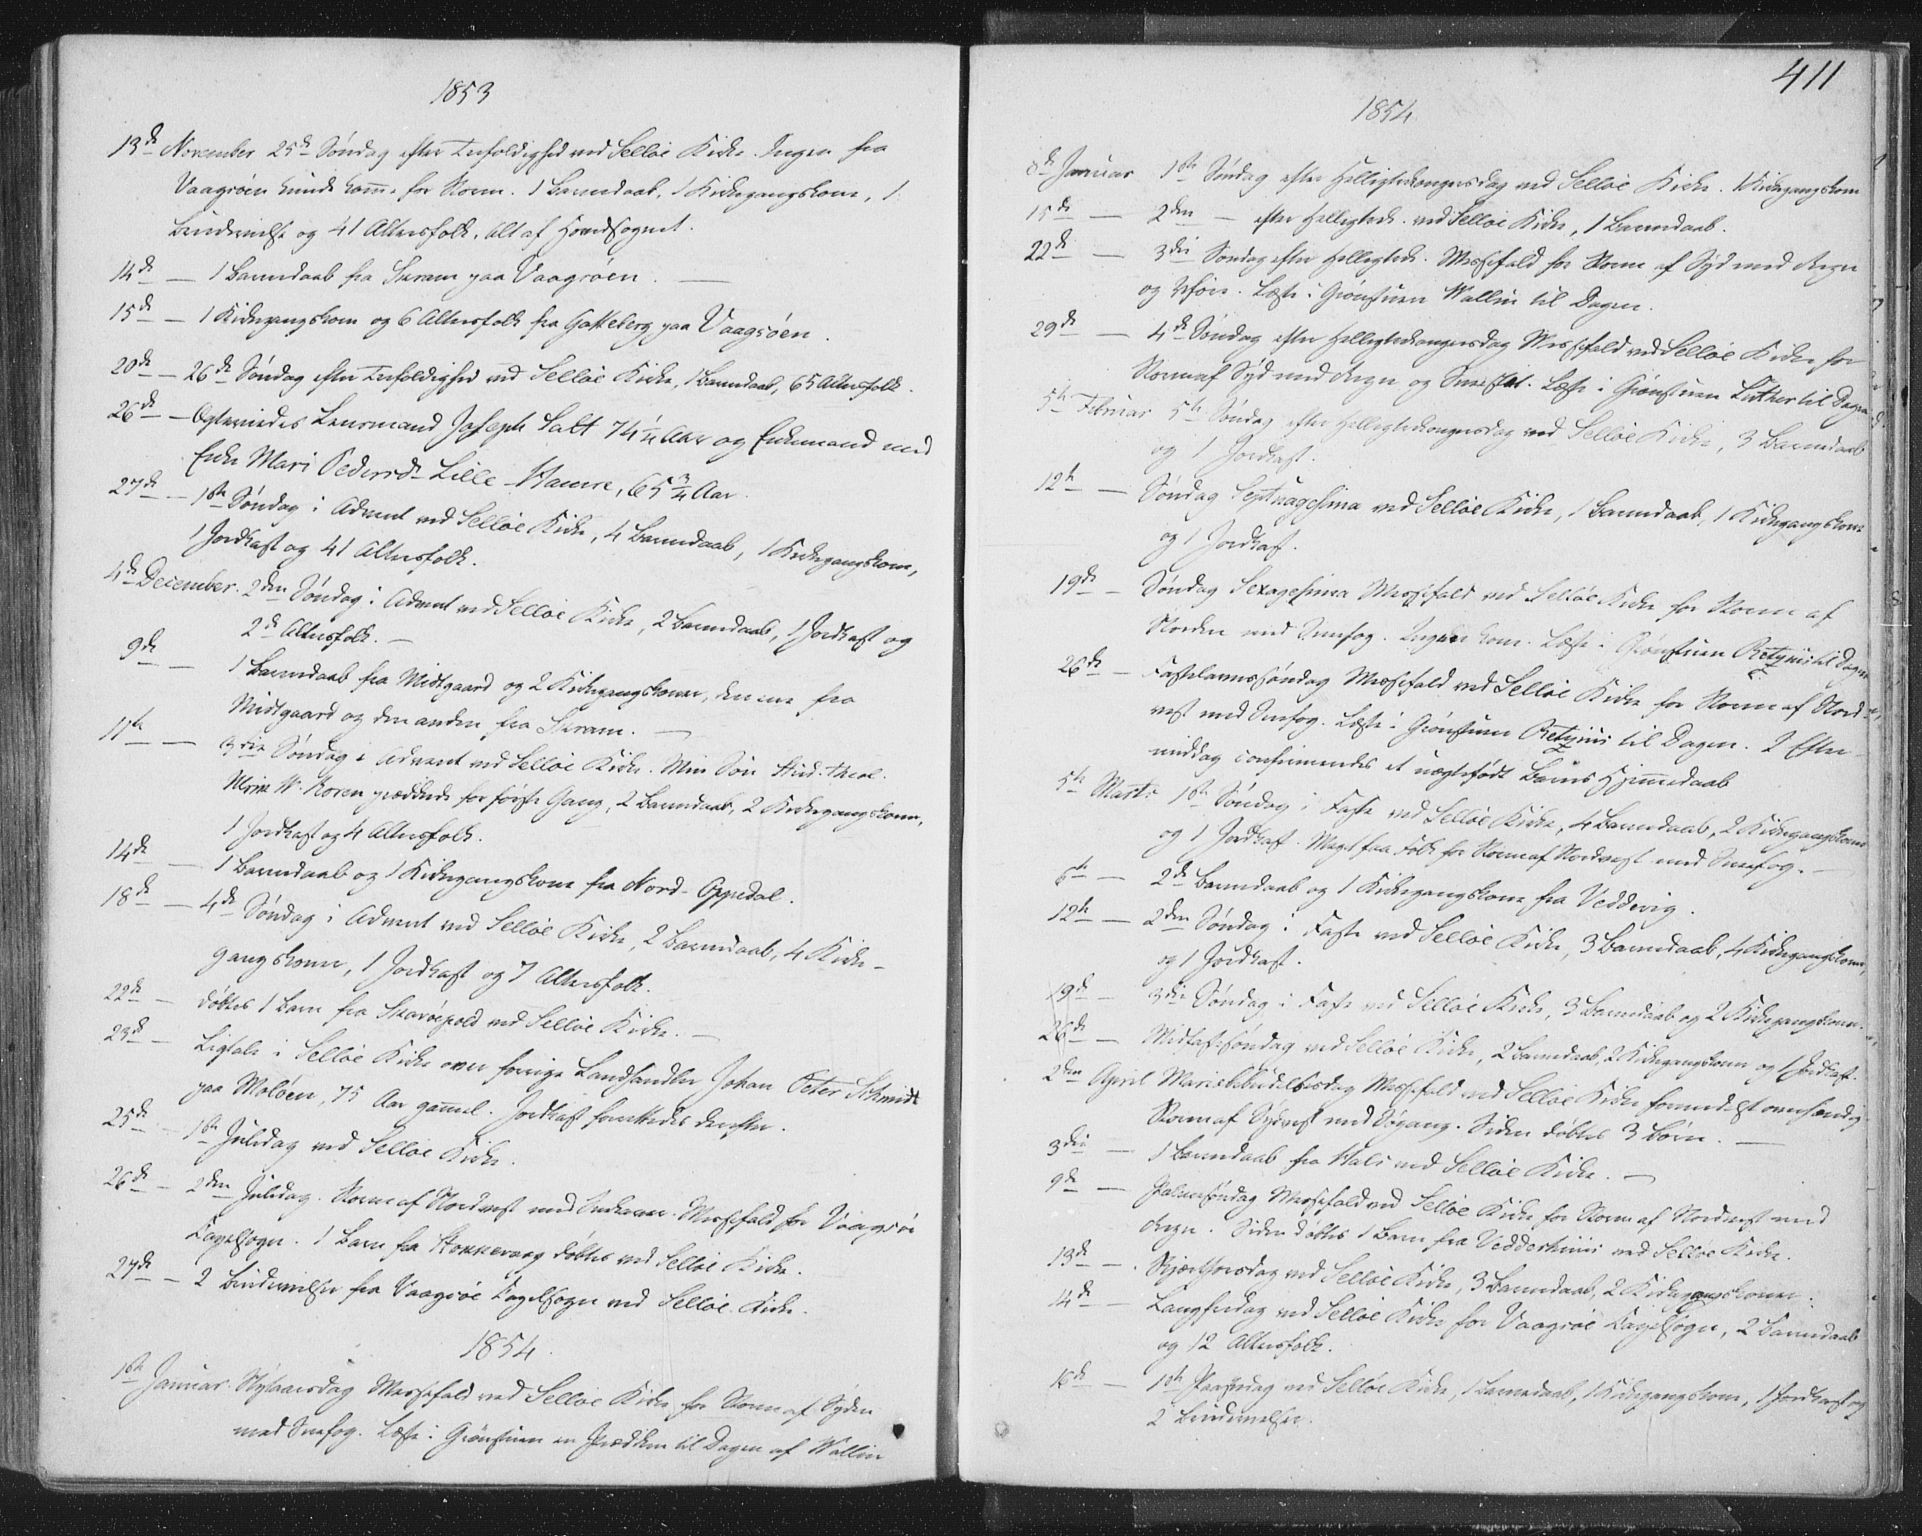 1853
13de November 25de Søndag efter Trefoldighed ved Selløe Kirke. Ingen fra
Vaagsøen kunde komme for Storm. 1 Barnedaab, 1 Kirkegangskone, 1
Trudvielse og 41 Altersfolk. Alt af Hovedsognet.
14de — 1 Barnedaab fra Skram paa Vaagsøen. —
15de — 1 Kirkegangskone og 6 Altersfolk fra Gotteberg paa Vaagsøen.
20de — 26de Søndag efter Trefoldighed ved Selløe Kirke, 1 Barnedaab, 65 Altersfolk.
26de — Egteviedes Lensmand Joseph Salt 74¼ Aar og Enkemand med
Enke Mari Pedersd. Lille-Hamre, 65¾ Aar.
27de — 1ste Søndag i Advent ved Selløe Kirke, 4 Barnedaab, 1 Kirkegangskone,
1 Jordkast og 41 Altersfolk.
4de December. 2den Søndag i Advent ved Selløe Kirke, 2 Barnedaab, 1 Jordkast og
2de Altersfolk. —
9de — 1 Barnedaab fra Midtgaard og 2 Kirkegangskoner, den ene fra
Midtgaard og den anden fra Skram. —
11te — 3die Søndag i Advent ved Selløe Kirke. Min Søn Stud. theol.
Ulrik W. Koren prædikede for første Gang, 2 Barnedaab, 2 Kirkegangskoner,
1 Jordkast og 4 Altersfolk.
14de — 1 Barnedaab og 1 Kirkegangskone fra Nord-Oppedal.
18de — 4de Søndag i Advent ved Selløe Kirke, 2 Barnedaab, 4 Kirke-
gangskoner, 1 Jordkast og 7 Altersfolk.
22de — døbtes 1 Barn fra Skavøepold ved Selløe Kirke. —
23de — Ligtale i Selløe Kirke over forrige Landhandler Johan Peter Schmidt
paa Moløen, 75 Aar gammel. Jordkast forrettedes derefter.
25de — 1ste Juledag ved Selløe Kirke.
26de — 2den Juledag. Storm af Nordvest med Snekave. Messefald for Vaagsøe
Kapelsogn. 1 Barn fra Hokkevaag døbtes ved Selløe Kirke.
27de — 2 Trudvielser fra Vaagsøe Kapelsogn ved Selløe Kirke.
1854.
1ste Januar. Nytaarsdag Messefald ved Selløe Kirke for Storm af Syden
med Snefog. Læste i Grønstuen en Prædiken til Dagen af Wallin
411
1854
8de Januar 1ste Søndag efter Helligtrekongersdag ved Selløe Kirke. 1 Kirkegangskone
15de — 2den — efter Helligtrek. ved Selløe Kirke, 1 Barnedaab.
22de — 3die Søndag efter Helligtrek. Messefald for Storm af Syd med Regn
og Usøir. Læste i Grønstuen Wallin til Dagen.
29de — 4de Søndag efter Helligtrekongersdag Messefald ved Selløe Kirke for
Storm af Syd med Regn og Snesled. Læste i Grønstuen Luther til Dagen.
5te Februar 5te Søndag efter Helligtrekongersdag ved Selløe Kirke, 3 Barnedaab
og 1 Jordkast.
12te — Søndag Septuagesima ved Selløe Kirke, 1 Barnedaab, 1 Kirkegangskone
og 1 Jordkast.
19de — Søndag Sexagesima Messefald ved Selløe Kirke for Storm af
Norden med Snefog. Ingen kom. Læste i Grønstuen Retzius til Dagen
26de — Fastelavnssøndag Messefald ved Selløe Kirke for Storm af Nord-
vest med Snefog. Læste i Grønstuen Retzius til Dagen. I Efter-
middag confirmeredes et uægtefødt Barns Hjemmedaab
5te Marts 1ste Søndag i Faste ved Selløe Kirke, 4 Barnedaab, 2 Kirkegangskoner
og 1 Jordkast. Meget faa Folk for Storm af Nordvest med Snefog. —
6te — 2de Barnedaab og 1 Kirkegangskone fra Veddevig.
12te — 2den Søndag i Faste ved Selløe Kirke, 3 Barnedaab, 4 Kirkegangskoner,
og 1 Jordkast.
19de — 3die Søndag i Faste ved Selløe Kirke, 3 Barnedaab og 2 Kirkegangskoner.
26de — Midfastesøndag ved Selløe Kirke, 2 Barnedaab, 2 Kirkegangskoner og 1 Jordkast.
2den April Mariebebudelsesdag Messefald ved Selløe Kirke formedelst
Storm af Sydvest med Søgang. Siden døbtes 3 Børn. —
3die — 1 Barnedaab fra Hals ved Selløe Kirke. —
9de — Palmesøndag Messefald ved Selløe Kirke for Storm af Nordvest med
Regn. Siden døbtes 1 Barn fra Veddehuus ved Selløe Kirke.
13de — Skjærthorsdag ved Selløe Kirke, 3 Barnedaab, 2 Kirkegangskoner.
14de — Langfredag ved Selløe Kirke for Vaagsøe Kapelsogn, 2 Barnedaab
og 12 Altersfolk.
16de — 1ste Paaskedag ved Selløe Kirke, 1 Barnedaab, 1 Kirkegangskone, 1 Jordkast og
2 Trudvielser.